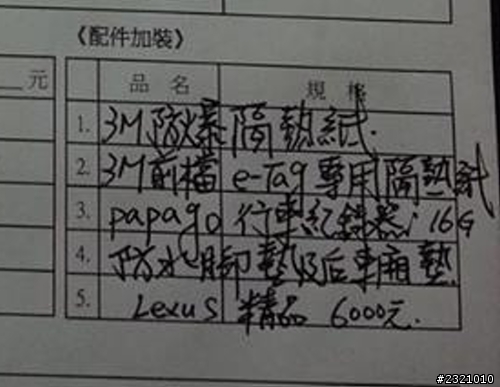 《配件加裝》
元 品名 規格
1. 3M防爆隔熱紙.
2. 3M前檔 e-Tag專用隔熱紙
3. papago 行車紀錄器, 16G
4. 防水腳墊及后車廂墊
5. Lexus 精品 6000元.
#2321010